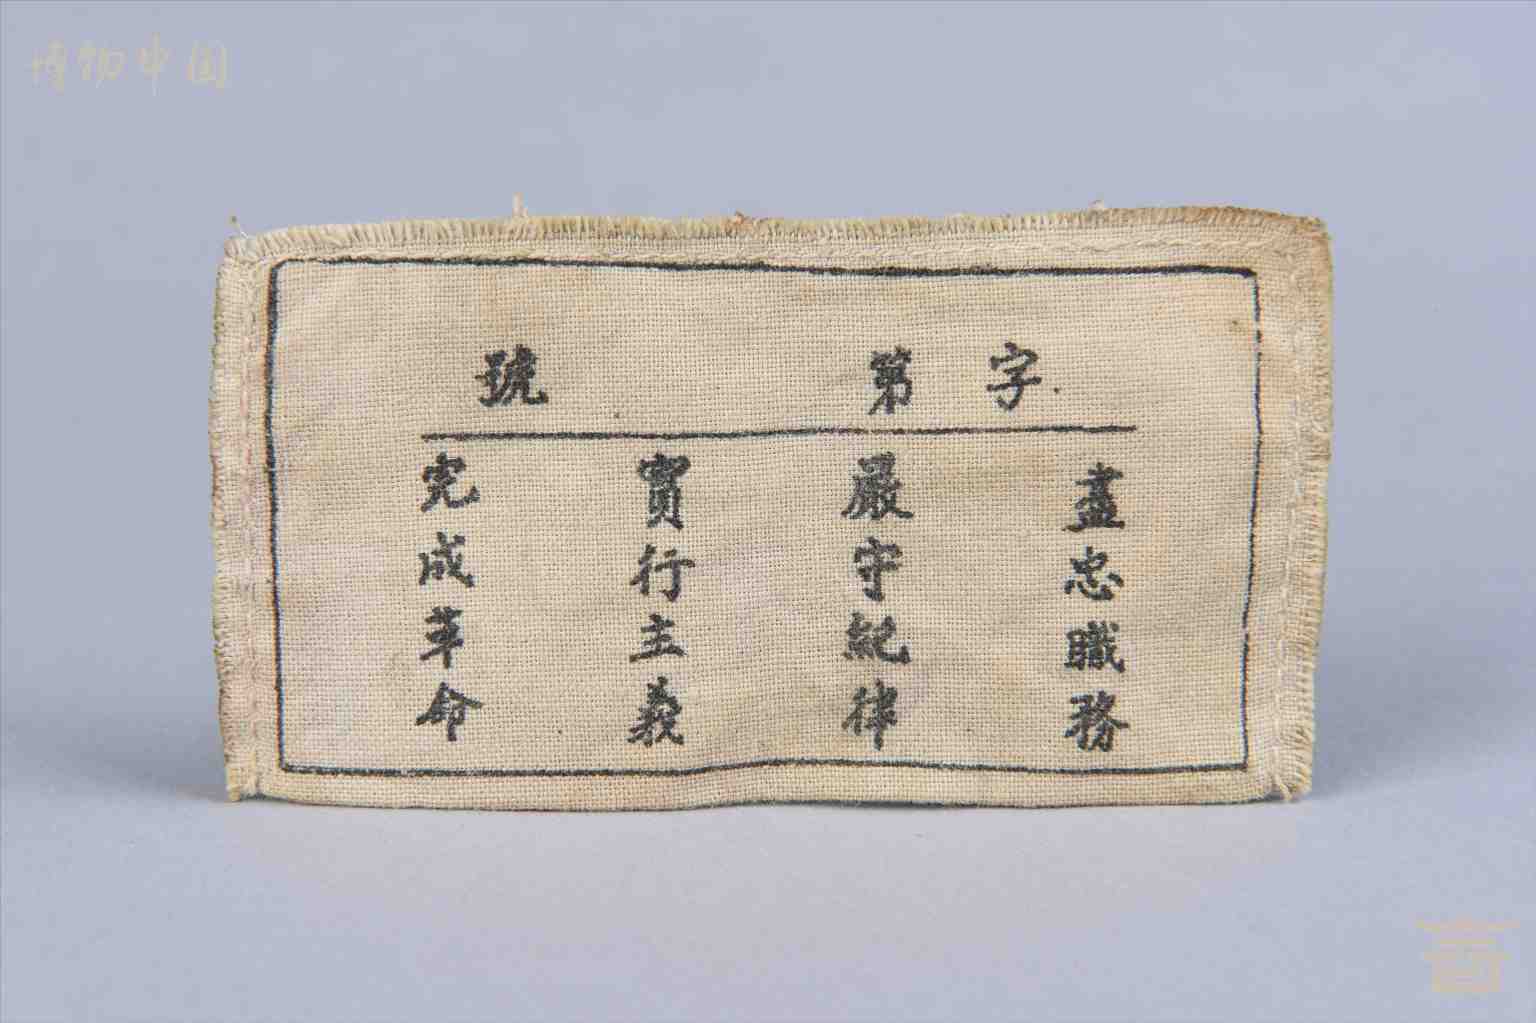 博物中国
字 第 號
盡忠職務
嚴守紀律
實行主義
完成革命